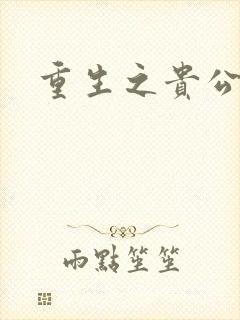 重生之貴公
雨點笙笙